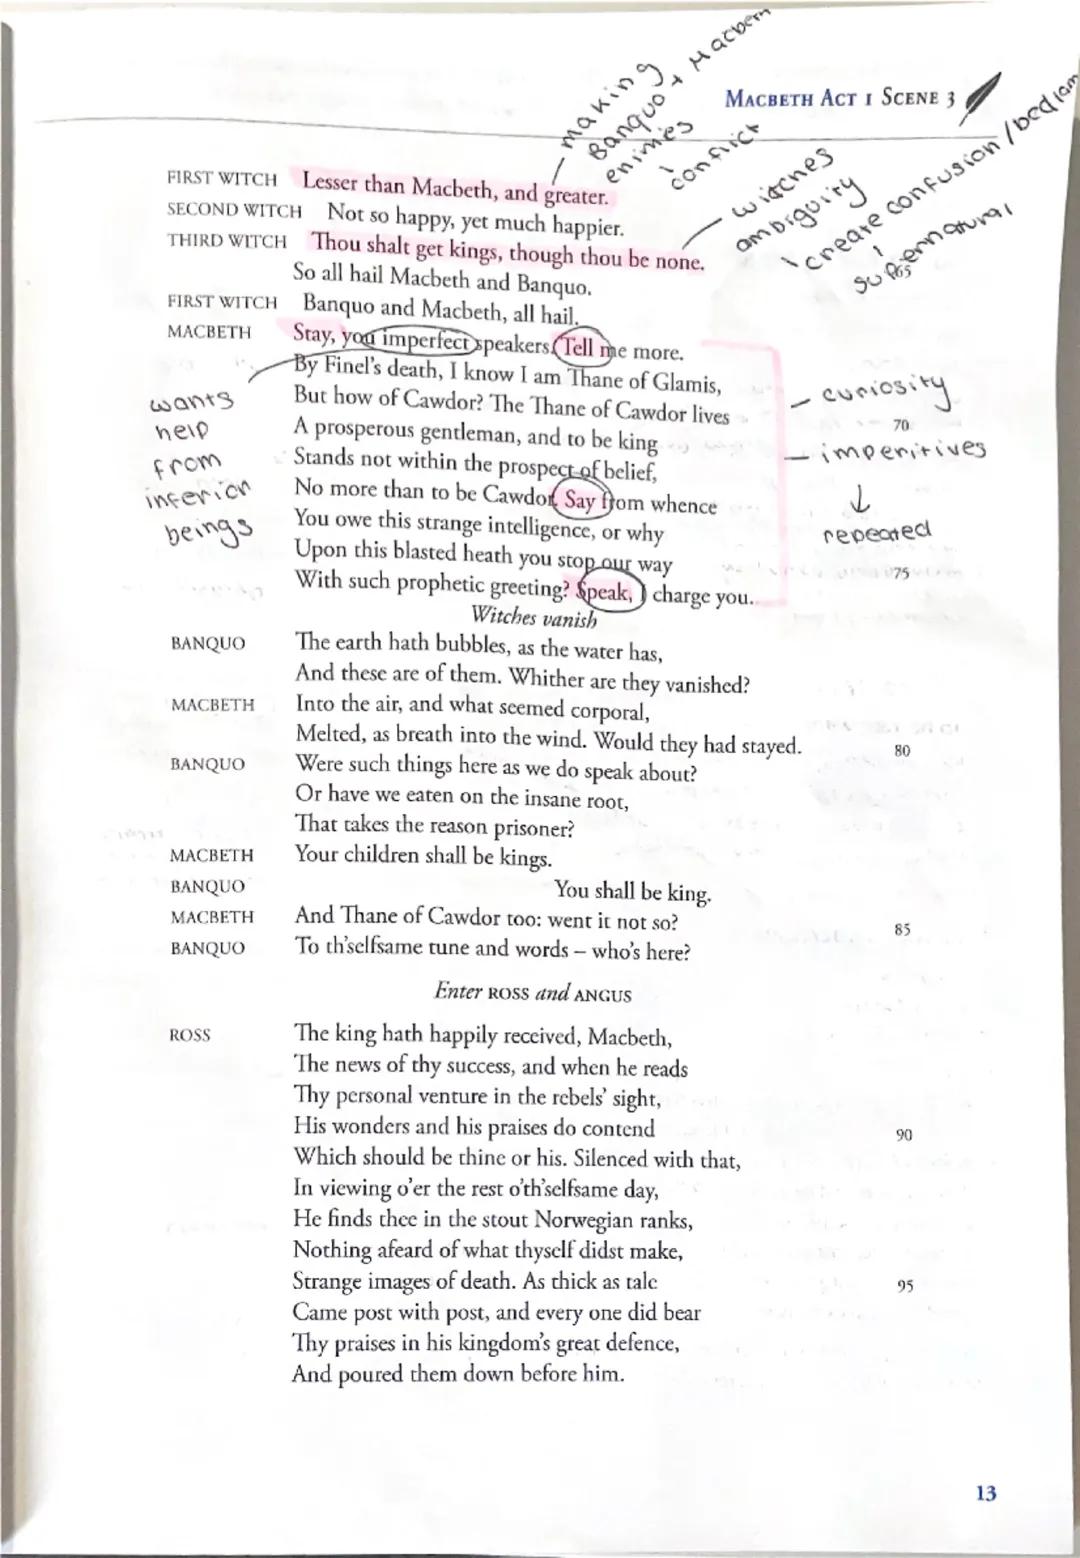 making
Banquo + Macbeth
enimies
conflict
MACBETH ACT 1 SCENE 3
witches
ambiguity
create confusion / bedlam
supernatural
FIRST WITCH Lesser than Macbeth, and greater.
SECOND WITCH Not so happy, yet much happier.
THIRD WITCH Thou shalt get kings, though thou be none.
So all hail Macbeth and Banquo. 65
FIRST WITCH Banquo and Macbeth, all hail.
MACBETH Stay, you imperfect speakers. Tell me more.
By Finel's death, I know I am Thane of Glamis,
But how of Cawdor? The Thane of Cawdor lives
A prosperous gentleman, and to be king 70
Stands not within the prospect of belief,
No more than to be Cawdor. Say from whence
You owe this strange intelligence, or why
Upon this blasted heath you stop our way
With such prophetic greeting? Speak, I charge you. 75
wants
help
from
inferior
beings
- curiosity
- imperitives
repeated
Witches vanish
BANQUO The earth hath bubbles, as the water has,
And these are of them. Whither are they vanished?
MACBETH Into the air, and what seemed corporal,
Melted, as breath into the wind. Would they had stayed. 80
BANQUO Were such things here as we do speak about?
Or have we eaten on the insane root,
That takes the reason prisoner?
MACBETH Your children shall be kings.
BANQUO You shall be king.
MACBETH And Thane of Cawdor too: went it not so? 85
BANQUO To th'selfsame tune and words – who's here?
Enter ROSS and ANGUS
ROSS The king hath happily received, Macbeth,
The news of thy success, and when he reads
Thy personal venture in the rebels' sight,
His wonders and his praises do contend 90
Which should be thine or his. Silenced with that,
In viewing o'er the rest o'th'selfsame day,
He finds thee in the stout Norwegian ranks,
Nothing afeard of what thyself didst make,
Strange images of death. As thick as tale 95
Came post with post, and every one did bear
Thy praises in his kingdom's great defence,
And poured them down before him.
13